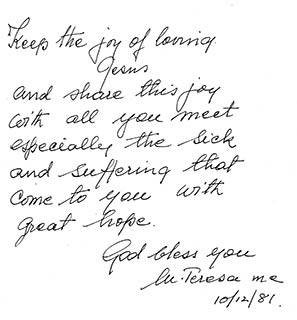 Keep the joy of loving
Jesus
and share this joy
with all you meet
especially the sick
and suffering that
come to you with
great hope.
God bless you
M. Teresa mc
10/12/81.